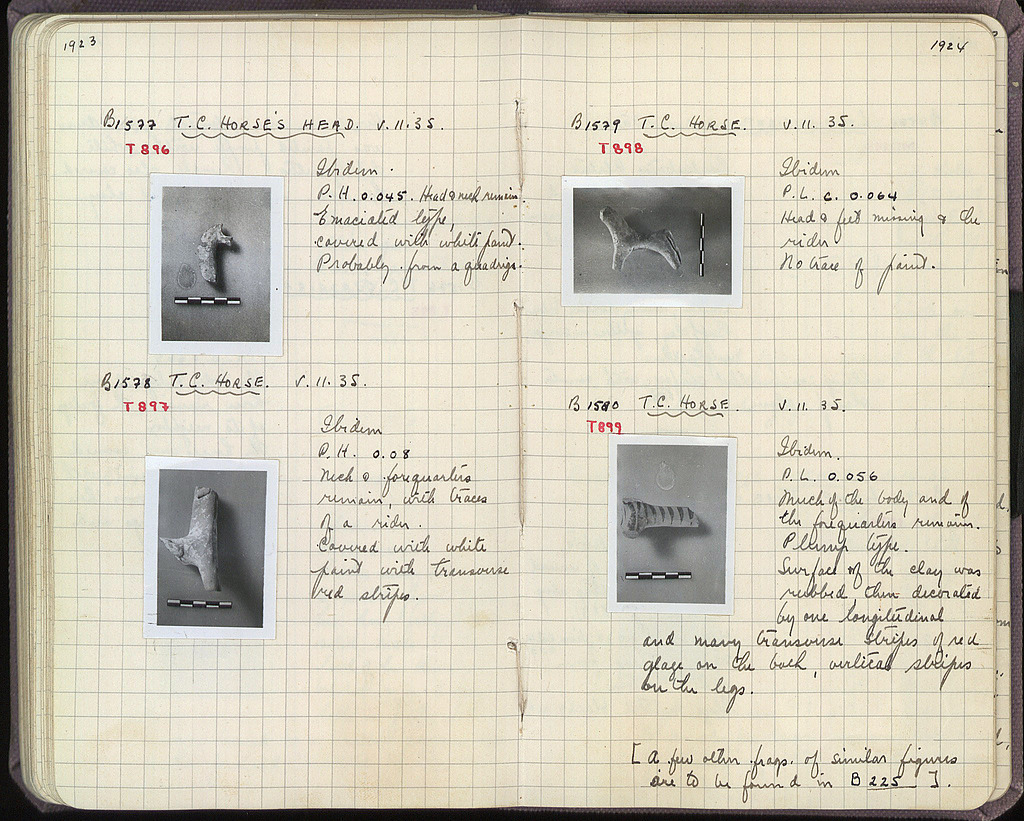 1923
B1577 T.C. HORSE'S HEAD. V.11.35.
T896
Ibidem.
P.H. 0.045. Head & neck remain.
Emaciated type,
covered with white paint.
Probably from a quadriga.
B1578 T.C. HORSE. V.11.35.
T897
Ibidem
P.H. 0.08
Neck & forequarters
remain, with traces
of a rider.
Covered with white
paint with transverse
red stripes.
1924
B1579 T.C. HORSE. V.11.35.
T898
Ibidem
P.L. c. 0.064
Head & feet missing & the
rider
No trace of paint.
B1580 T.C. HORSE. V.11.35.
T899
Ibidem.
P.L. 0.056
Much of the body and of
the forequarters remains.
Plump type.
Surface of the clay was
rubbed then decorated
by one longitudinal
and many transverse stripes of red
glaze on the back, vertical stripes
on the legs.
[A few other frags. of similar figures
are to be found in B 225].